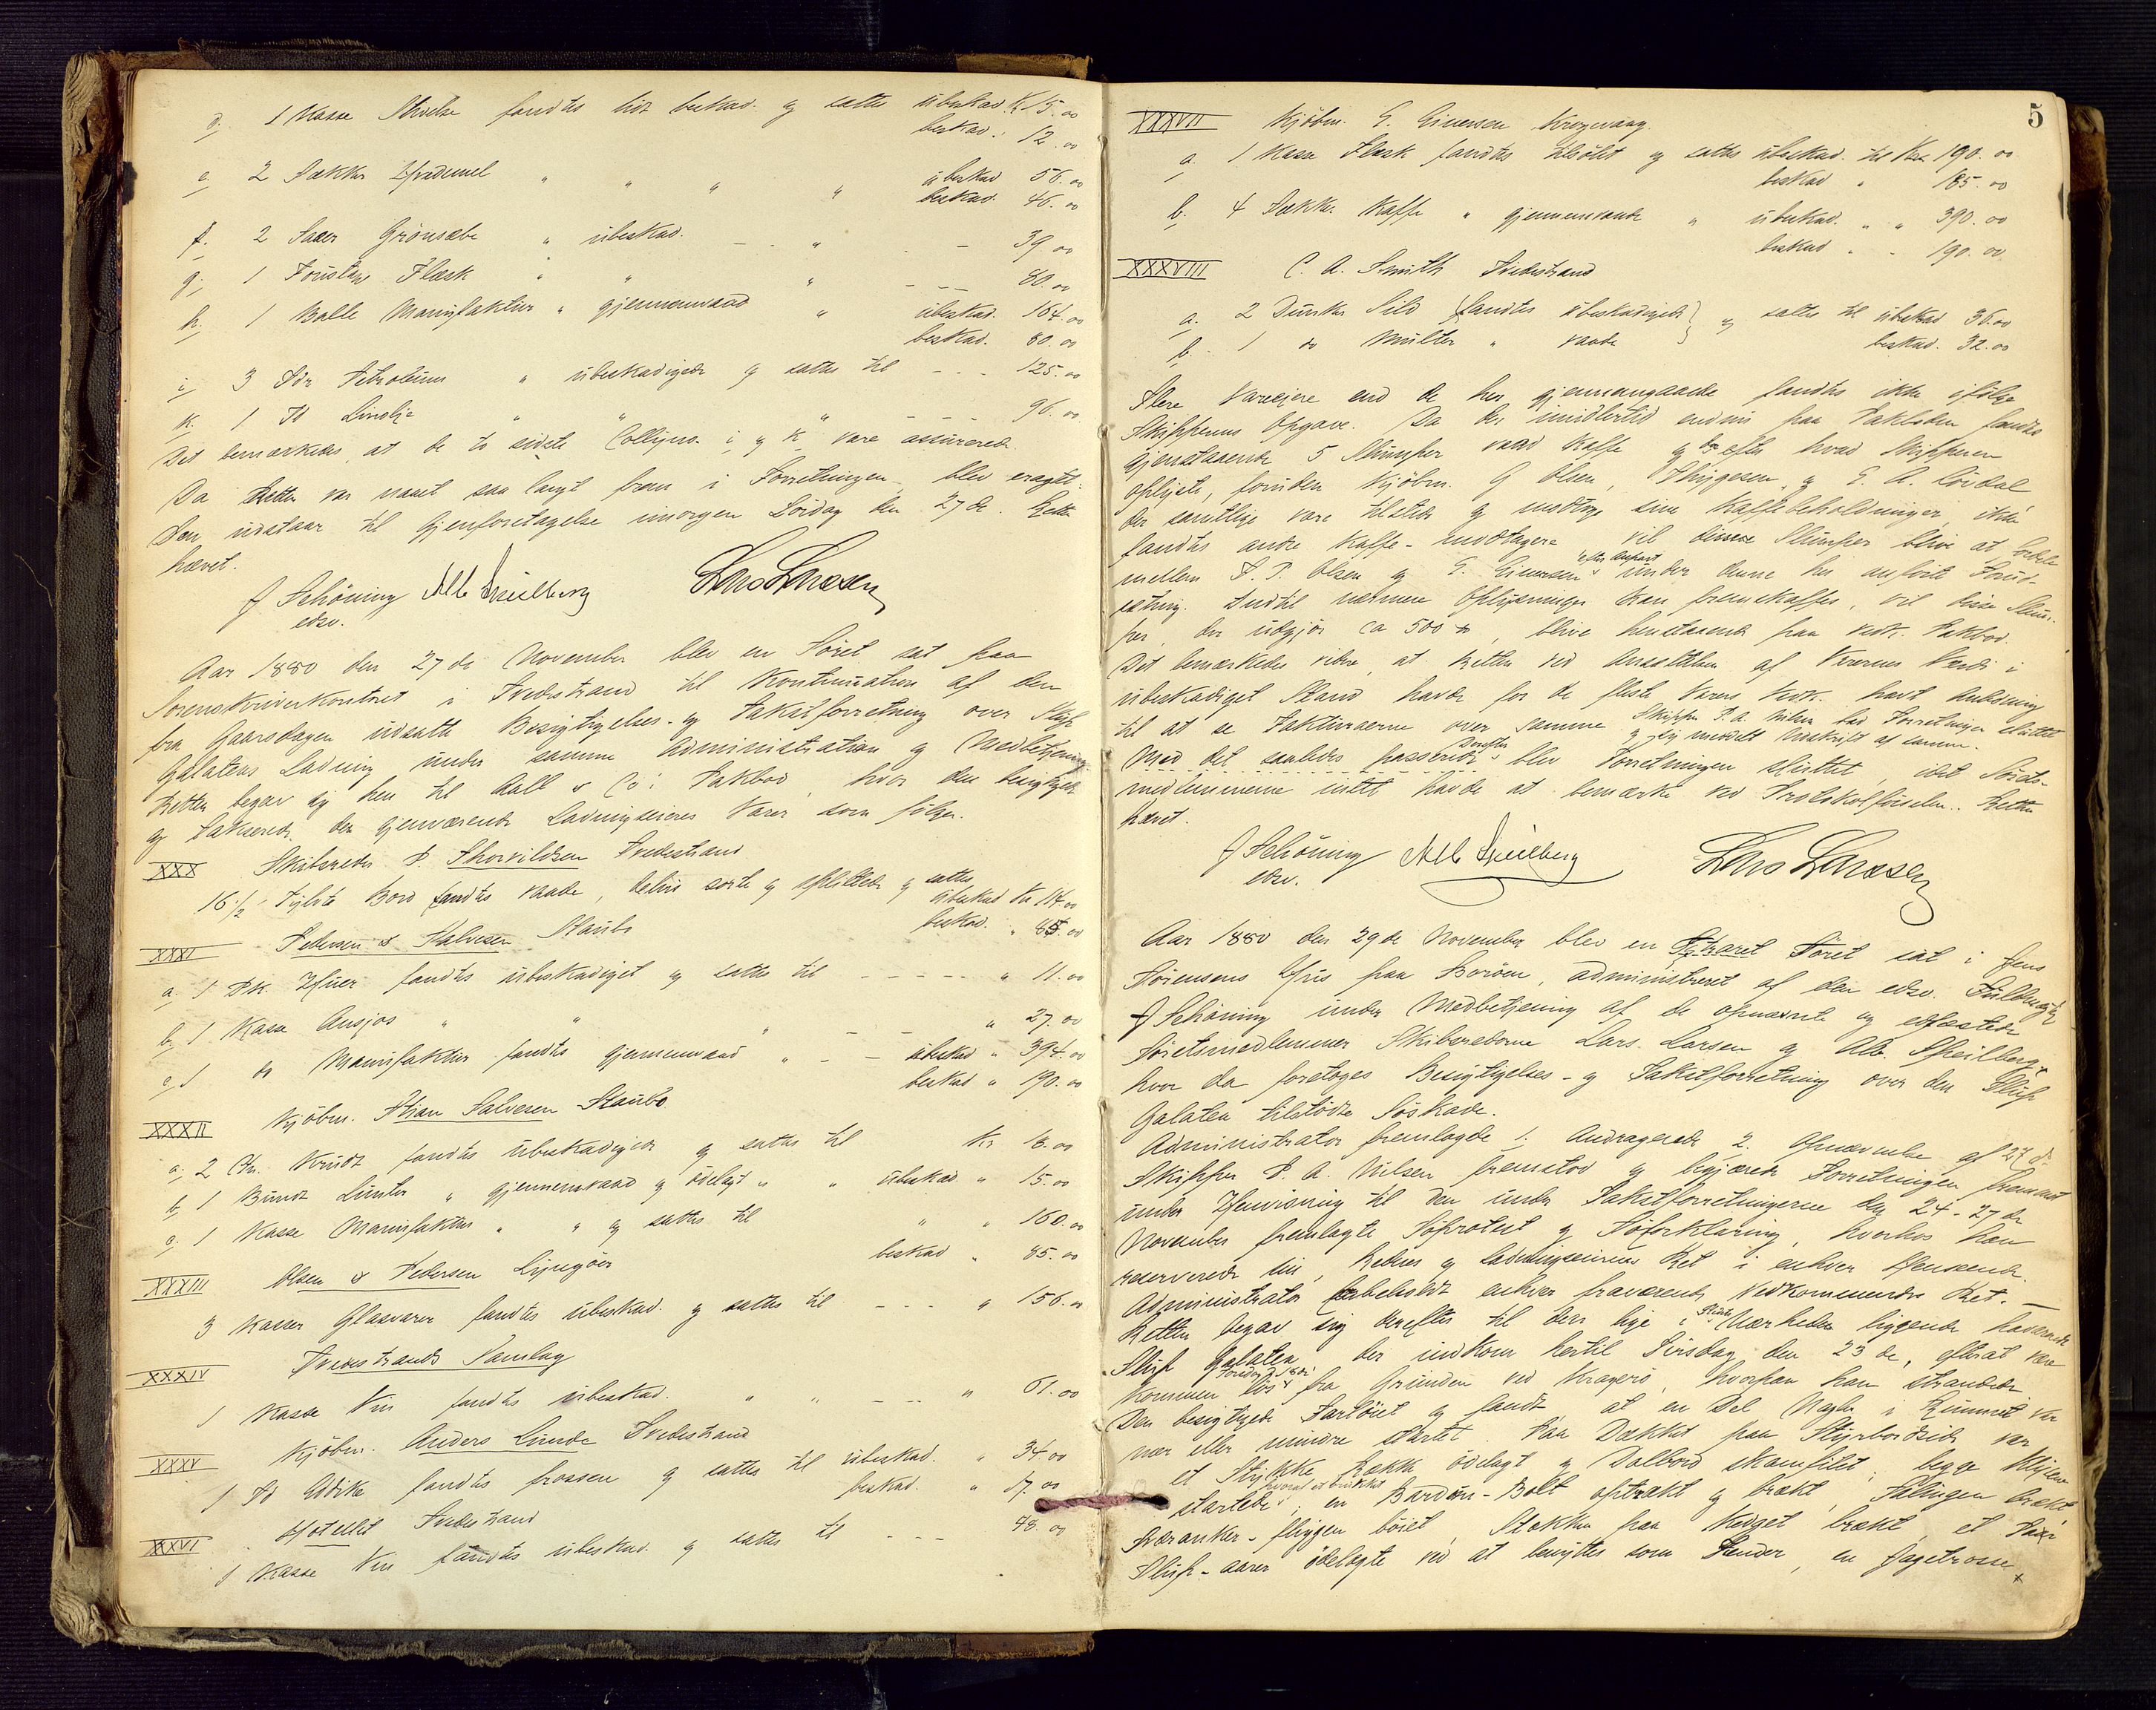 d. 1 Kasse Stivelse fandtes lidt beskad. og sattes übeskad. Kr 15.00
beskad. 12.00
e, 2 Sækker Hvedemel " " " " übeskad 56.00
beskad. 46.00
f. 2 Sæer Grønsæbe " übeskad. — " — 39.00
g, 1 Foustage Flæsk " " " — 80.00
h. 1 Balle Manufaktur " gjennemvaad " übeskad. 164.00
beskad. 80.00
i, 3 Fdr Petroleum " übeskadigede og sattes til — 125.00
k. 1 Fd Linolje " " " — 96.00
Det bemærkedes, at de to sidste Collijer i og k vare assurerede.
Da Retten var naaet saa langt frem i Forretningen, blev eragtet:
Den udstaar til Gjenforetagelse imorgen Lördag den 27de. Retten
hævet.
J Schöning Alb Speilberg Lars Larsen
edsv.
Aar 1880 den 27de November blev en Söret sat paa
Sorenskriverkontoret i Tvedestrand til Kontinuation af den
fra Gaarsdagen udsatte Besigtigelses- og Taxtforretning over Slup
Galateas Ladning under samme Administration og Medbetjening
Retten begav sig hen til Aall & Co's Pakbod, hvor den besigtigede
og takserede de gjenværende Ladningseieres Varer som følger.
XXX Skibsreder P. Thorvildsen Tvedestrand
16 1/2 Tylvt Bord fandtes vaade, delvis sorte og splittede og sattes
übeskad Kr 114.00
beskad. " 85.00
XXXI Pedersen & Halvesen Staübö
a, 1 Pk. Huer fandtes übeskadiget og sattes til - - - - - " 11.00
b, 1 Kasse Ansjos " " " — — " 27.00
c, 1 do Manufaktur fandtes gjennemvaad " — — übeskad " 394.00
beskad " 190.00
XXXII Kjöbm. Stian Salvesen Staübö
a, 2 Ctn. Krudt fandtes übeskadigede og sattes til Kr 18.00
b, 1 Bundt Lunter " gjennemvaad og ödelagt " " übeskad. " 15.00
c. 1 Kasse Manufaktur " " og sattes til " " 160.00
beskad " 85.00
XXXIII Olsen & Pedersen Lyngör
3 Kasser Glasvarer fandtes übeskad. og sattes til - - - " 156.00
XXXIV Tvedestrands Samlag
1 Kasse Vin fandtes übeskad. " " — " 61.00
XXXV Kjöbm. Anders Lunde Tvedestrand
1 Fd Eddike fandtes frossen og sattes til übeskad. " 34.00
beskad. " 17.00
XXXVI Hotellet Tvedestrand
1 Kasse Vin fandtes übeskad. og sattes til - - - 48.00
5
XXXVII Kjöbm. E. Einersen Krogevaag.
a. 1 Kasse Flæsk fandtes tilsölet og sattes übeskad. til Kr 190.00
beskad " 185.00
b. 4 Sækk. Kaffe " gjennemvaade " übeskad. " " 390.00
beskad " " 190.00
XXXVIII C. A. Smith Tvedestrand
a. 2 Dunker Sild fandtes übeskadigede } og sattes til übeskad 36.00
b. 1 do Multer " vaade } beskad. 32.00
Flere Vareeiere end de her gjennemgaaede fandtes ikke ifölge
Skipperens Opgave. Da der imidlertid endnu paa Pakboden fandtes
Gjenstaaende 5 Slumper vaad Kaffe og da efter hvad Skipperen
oplyste, foruden Kjöbm. G Olsen, Thygesen, og E. A. Lövdal
der samtlige vare tilstede og modtoge sine Kaffebeholdninger, ikke
fandtes andre Kaffe-modtagere vil disse Slumper blive at fordele
mellem P. P. Olsen og E. Einersen efter Anpart under denne her anförte Forud-
sætning. Indtil nærmere Oplysninger kan fremskaffes, vil disse Slum-
per, der udgjör ca 500 ℔, blive henstaaende paa vedk. Pakbod.
Det bemærkedes videre, at Retten ved Ansættelsen af Varernes Værdi i
übeskadiget Stand havde for de fleste Varers Vedk. havt Anledning
til at se Fakturaerne over samme. Skipper P. A. Nilsen bad Forretningen sluttet
og sig meddelt Udskrift af samme.
Med det saaledes passerede Derefter blev Forretningen sluttet, idet Sörets-
medlemmerne intet havde at bemærke ved Protokolförselen. Retten
hævet.
J Schöning Alb Speilberg Lars Larsen
edsv.
Aar 1880 den 29de November blev en Extraret Söret sat i Jens
Sörensens Hus paa Boröen, administreret af den edsv. Fuldmægtig
J Schöning under Medbetjening af de opnævnte og edfæstede
Söretsmedlemmer Skibsrederne Lars Larsen og Alb. Speilberg,
hvor da foretoges Besigtigelses- og Taxtforretning over den Slup
Galatea tilstödte Söskade.
Administrator fremlagde 1. Andragende 2. Opnævnelse af 27 ds.
Skipper P. A. Nilsen fremstod og begjærede Forretningen fremmet
under Henvisning til den under Taxtforretningerne den 24-27 de
November fremlagte Söprotest og Söforklaring, hvorhos han
reserverede sin, Rederes og Ladningseieres Ret i enhver Henseende.
Administrator forbeholdt enhver fraværende Vedkommendes Ret. —
Retten begav sig derefter til den lige i Stedets Nærheden liggende havarerede
Slup Galatea, der indkom hertil Tirsdag den 23 de, efterat være
kommen lös fra Grunden ved Kragerö, hvorpaa han strandede
Den besigtigede Fartöiet og fandt at en Del Nagler i Rummet var
mer eller mindre startet. Paa Dækket paa Styrbordside var
et Stykke Rækk ödelagt og Dalbord skamfilet; begge Klyser
startede; en Bardun-Bolt optrækt og brækt, Sælingen brækt
Sværanker-fliggen böiet, Stokken paa Varpet brækt, et Par
Slup-aarer ödelagte ved at benyttes som Fender, en Jagetrosse